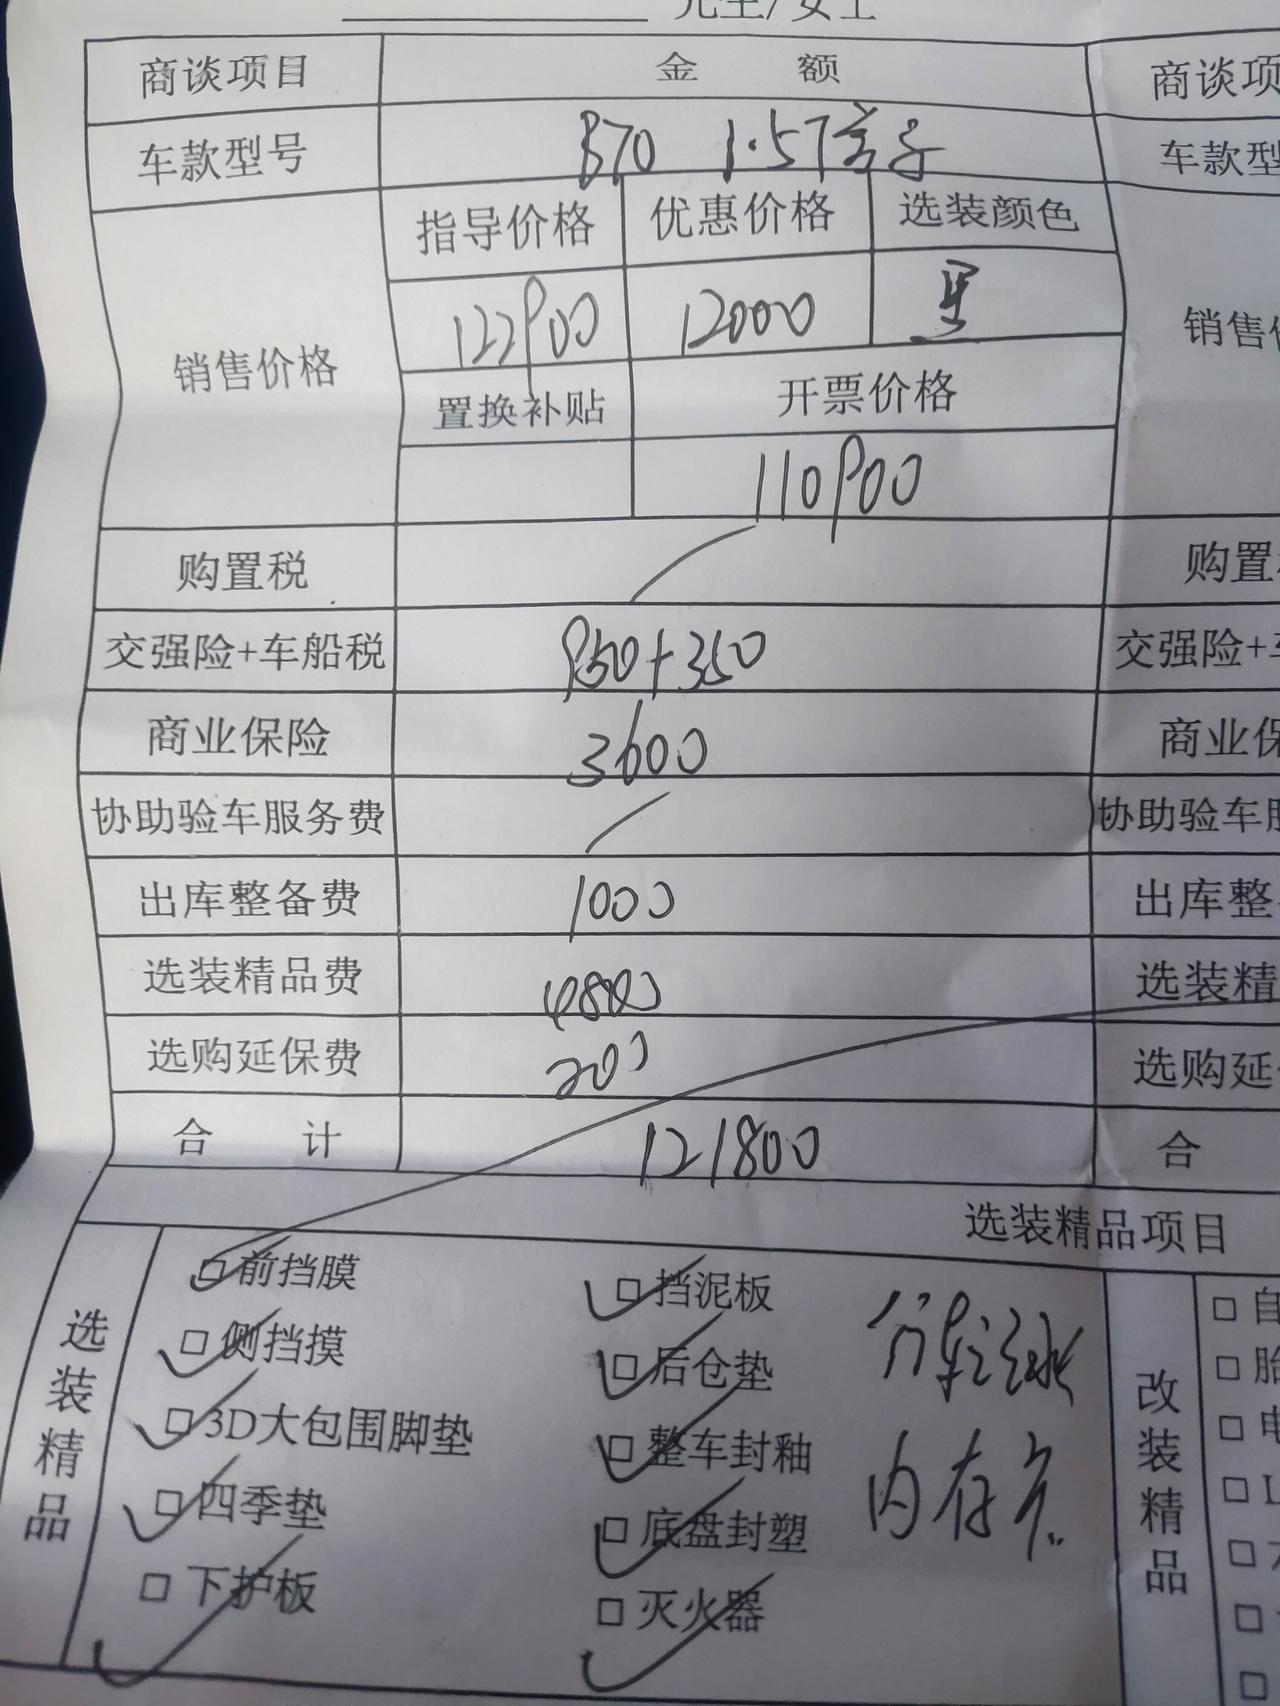 先生/女士
商谈项目 金 额 商谈项
车款型号 B70 1.5T 车款型
指导价格 优惠价格 选装颜色
122900 12000 黑
销售价格 销售价
置换补贴 开票价格
110900
购置税 购置
交强险+车船税 950+350 交强险+
商业保险 3600 商业保
协助验车服务费 协助验车服
出库整备费 1000 出库整
选装精品费 4800 选装精
选购延保费 200 选购延
合 计 121800 合
选装精品项目
选装精品
□前挡膜 □挡泥板
□侧挡摸 □后仓垫
□3D大包围脚垫 □整车封釉
□四季垫 □底盘封塑 内存卡
□下护板 □灭火器
改装精品
□自
□胎
□电
□L